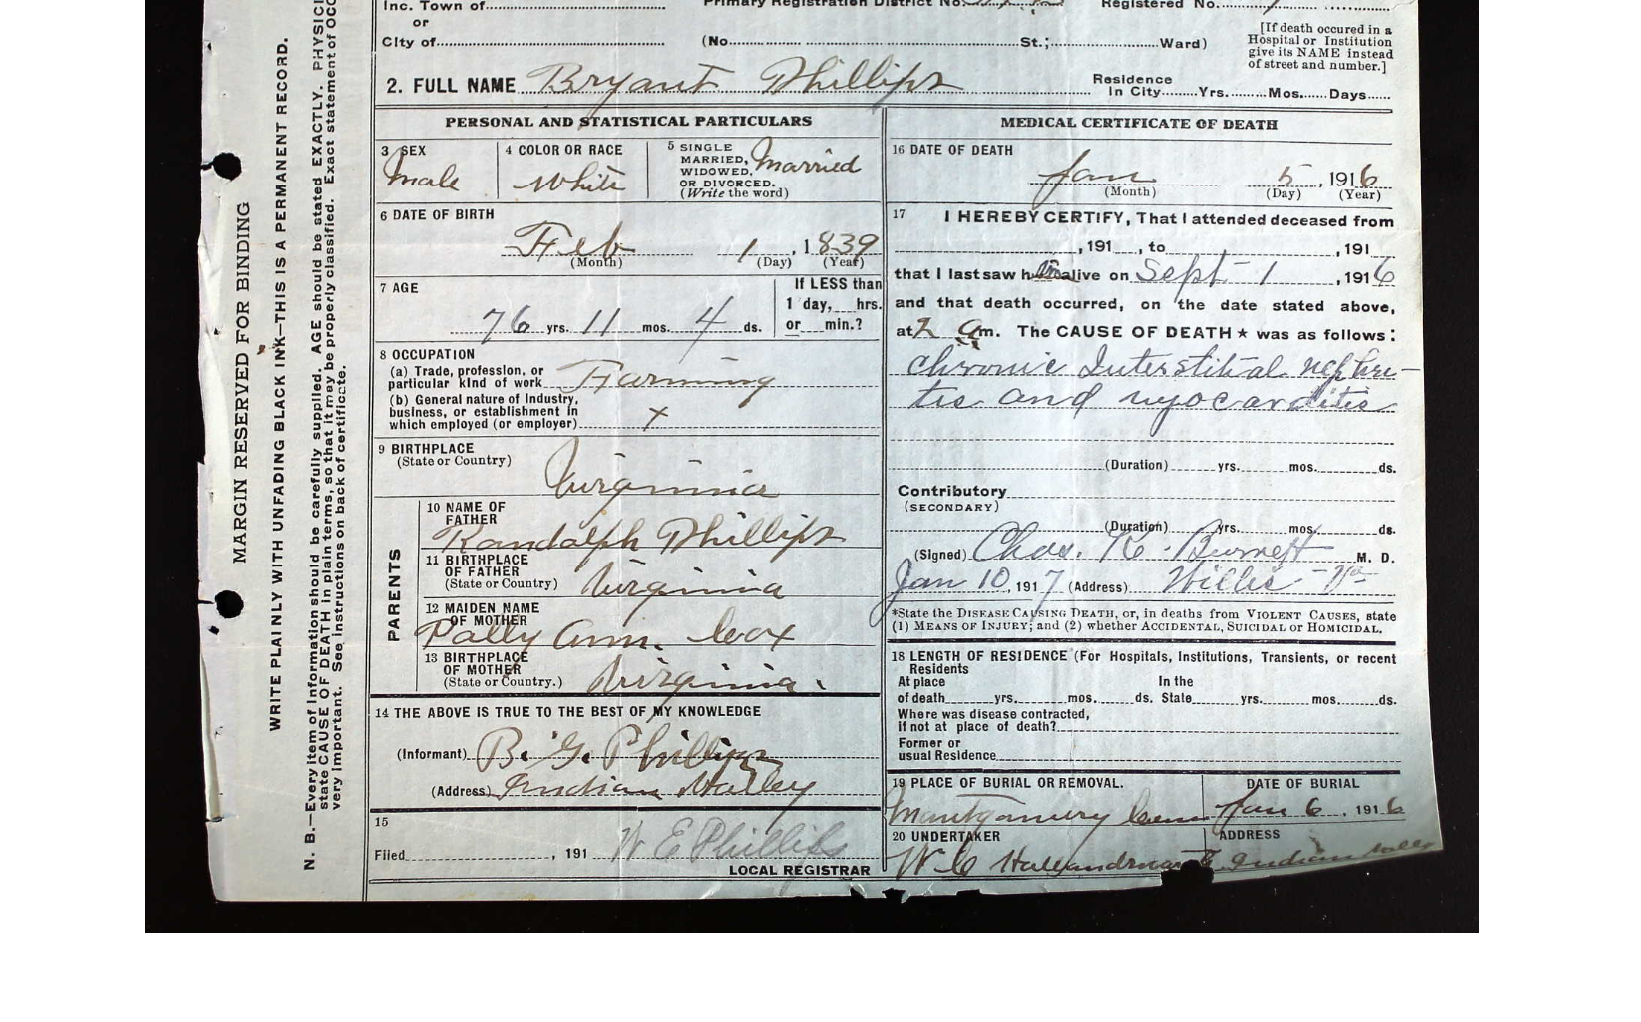 Inc. Town of Primary Registration District No. Registered No.
or
City of (No. St.; Ward)
[If death occured in a
Hospital or Institution
give its NAME instead
of street and number.]
2. FULL NAME Bryant Phillips Residence
In City Yrs. Mos. Days
MARGIN RESERVED FOR BINDING
WRITE PLAINLY WITH UNFADING BLACK INK—THIS IS A PERMANENT RECORD.
N. B.—Every item of information should be carefully supplied. AGE should be stated EXACTLY. PHYSICI
state CAUSE OF DEATH in plain terms, so that it may be properly classified. Exact statement of OCC
very important. See instructions on back of certificate.
PERSONAL AND STATISTICAL PARTICULARS
3 SEX
Male
4 COLOR OR RACE
White
5 SINGLE
MARRIED,
WIDOWED,
OR DIVORCED.
(Write the word)
Married
6 DATE OF BIRTH
Feb 1, 1839
(Month) (Day) (Year)
7 AGE
76 yrs. 11 mos. 4 ds.
If LESS than
1 day, hrs.
or min.?
8 OCCUPATION
(a) Trade, profession, or
particular kind of work Farming
(b) General nature of industry,
business, or establishment in
which employed (or employer) x
9 BIRTHPLACE
(State or Country)
Virginia
PARENTS
10 NAME OF
FATHER
Randalph Phillips
11 BIRTHPLACE
OF FATHER
(State or Country) Virginia
12 MAIDEN NAME
OF MOTHER
Polly Ann. Cox
13 BIRTHPLACE
OF MOTHER
(State or Country.) Virginia.
14 THE ABOVE IS TRUE TO THE BEST OF MY KNOWLEDGE
(Informant) B. G. Phillips
(Address) Indian Valley
15
Filed , 191 W E Phillips
LOCAL REGISTRAR
MEDICAL CERTIFICATE OF DEATH
16 DATE OF DEATH
Jan 5, 1916
(Month) (Day) (Year)
17 I HEREBY CERTIFY, That I attended deceased from
, 191 , to , 191
that I last saw h alive on Sept 1, 1916
and that death occurred, on the date stated above,
at 2 am. The CAUSE OF DEATH ★ was as follows:
Chronic Interstitial nephri-
tis and myocarditis
(Duration) yrs. mos. ds.
Contributory
(SECONDARY)
(Duration) yrs. mos. ds.
(Signed) Chas. Burnett M. D.
Jan 10, 1917 (Address) Willis Va
*State the DISEASE CAUSING DEATH, or, in deaths from VIOLENT CAUSES, state
(1) MEANS OF INJURY; and (2) whether ACCIDENTAL, SUICIDAL or HOMICIDAL.
18 LENGTH OF RESIDENCE (For Hospitals, Institutions, Transients, or recent
Residents
At place In the
of death yrs. mos. ds. State yrs. mos. ds.
Where was disease contracted,
If not at place of death?
Former or
usual Residence
19 PLACE OF BURIAL OR REMOVAL. DATE OF BURIAL
Montgomery Cem Jan 6, 1916
20 UNDERTAKER ADDRESS
W C Indian Valley